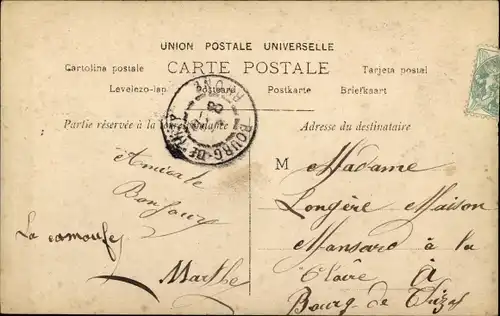 UNION POSTALE UNIVERSELLE
Cartolina postale CARTE POSTALE Tarjeta postal
Levelezo-lap Postcard Postkarte Briefkaart
Partie réservée à la correspondance Adresse du destinataire
RHONE
BOURG-DE-THIZY
Amicale
Bonjour
Marthe
M Madame
Longère Maison
Mansard à la
Claire à
Bourg-de Thizy